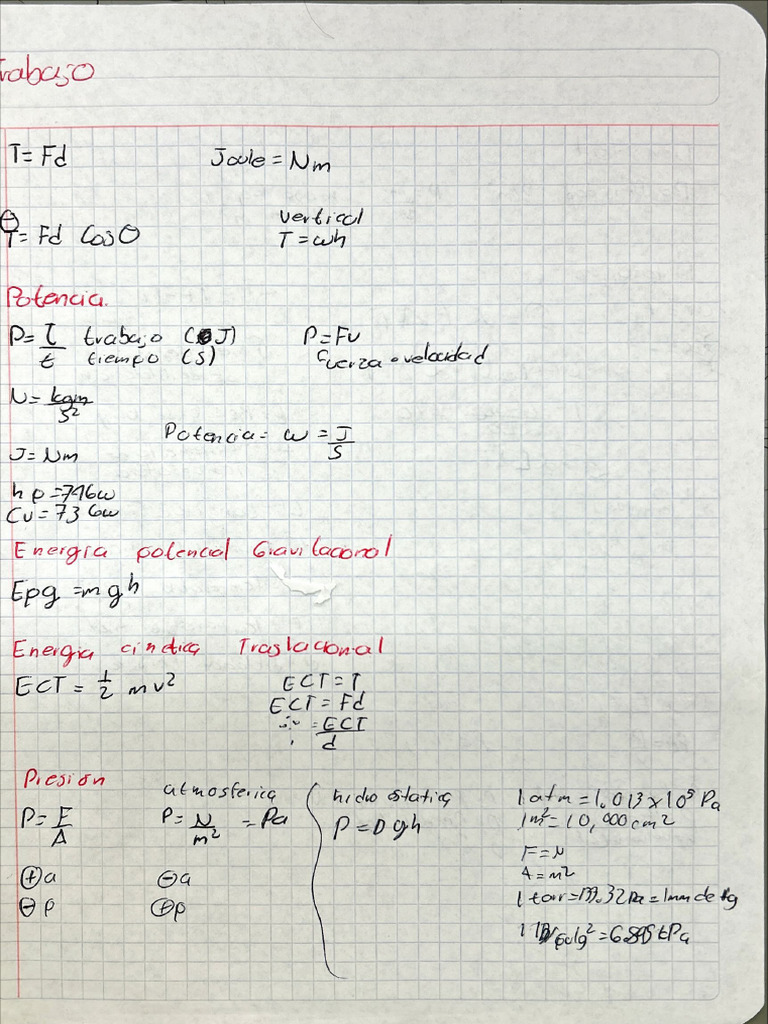 Trabajo
T = Fd    Joule = Nm
T = Fd Cos θ    vertical
T = wh
Potencia.
P = T/t trabajo (J) tiempo (s)    P = Fv
fuerza • velocidad
N = kgm/s²
Potencia = w = J/s
J = Nm
hp = 746w
Cv = 736w
Energia potencial Gravitacional
Epg = mgh
Energia cinetica Traslacional
ECT = 1/2 mv²    ECT = T
ECT = Fd
∴ = ECT/d
Presion
P = F/A    atmosferica P = N/m² = Pa
⊕ a    ⊖ a
⊖ p    ⊕ p
hidrostatica
P = D gh
1 atm = 1.013 x 10⁵ Pa
1 m² = 10,000 cm²
F = N
A = m²
1 torr = 133.32 Pa = 1mm de Hg